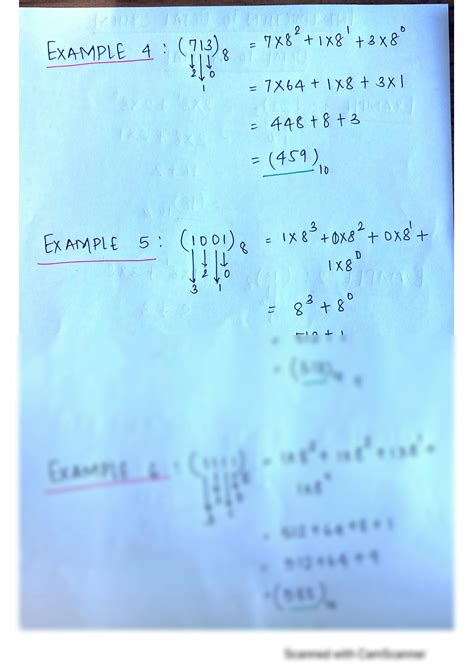 EXAMPLE 4 : (713)₈ = 7×8² + 1×8¹ + 3×8⁰
2 1 0
= 7×64 + 1×8 + 3×1
= 448 + 8 + 3
= (459)₁₀
EXAMPLE 5 : (1001)₈ = 1×8³ + 0×8² + 0×8¹ +
1×8⁰
3 2 1 0
= 8³ + 8⁰
EXAMPLE 6 :
= 512 + 64 + 8 + 1
= 512 + 64 + 9
Scanned with CamScanner